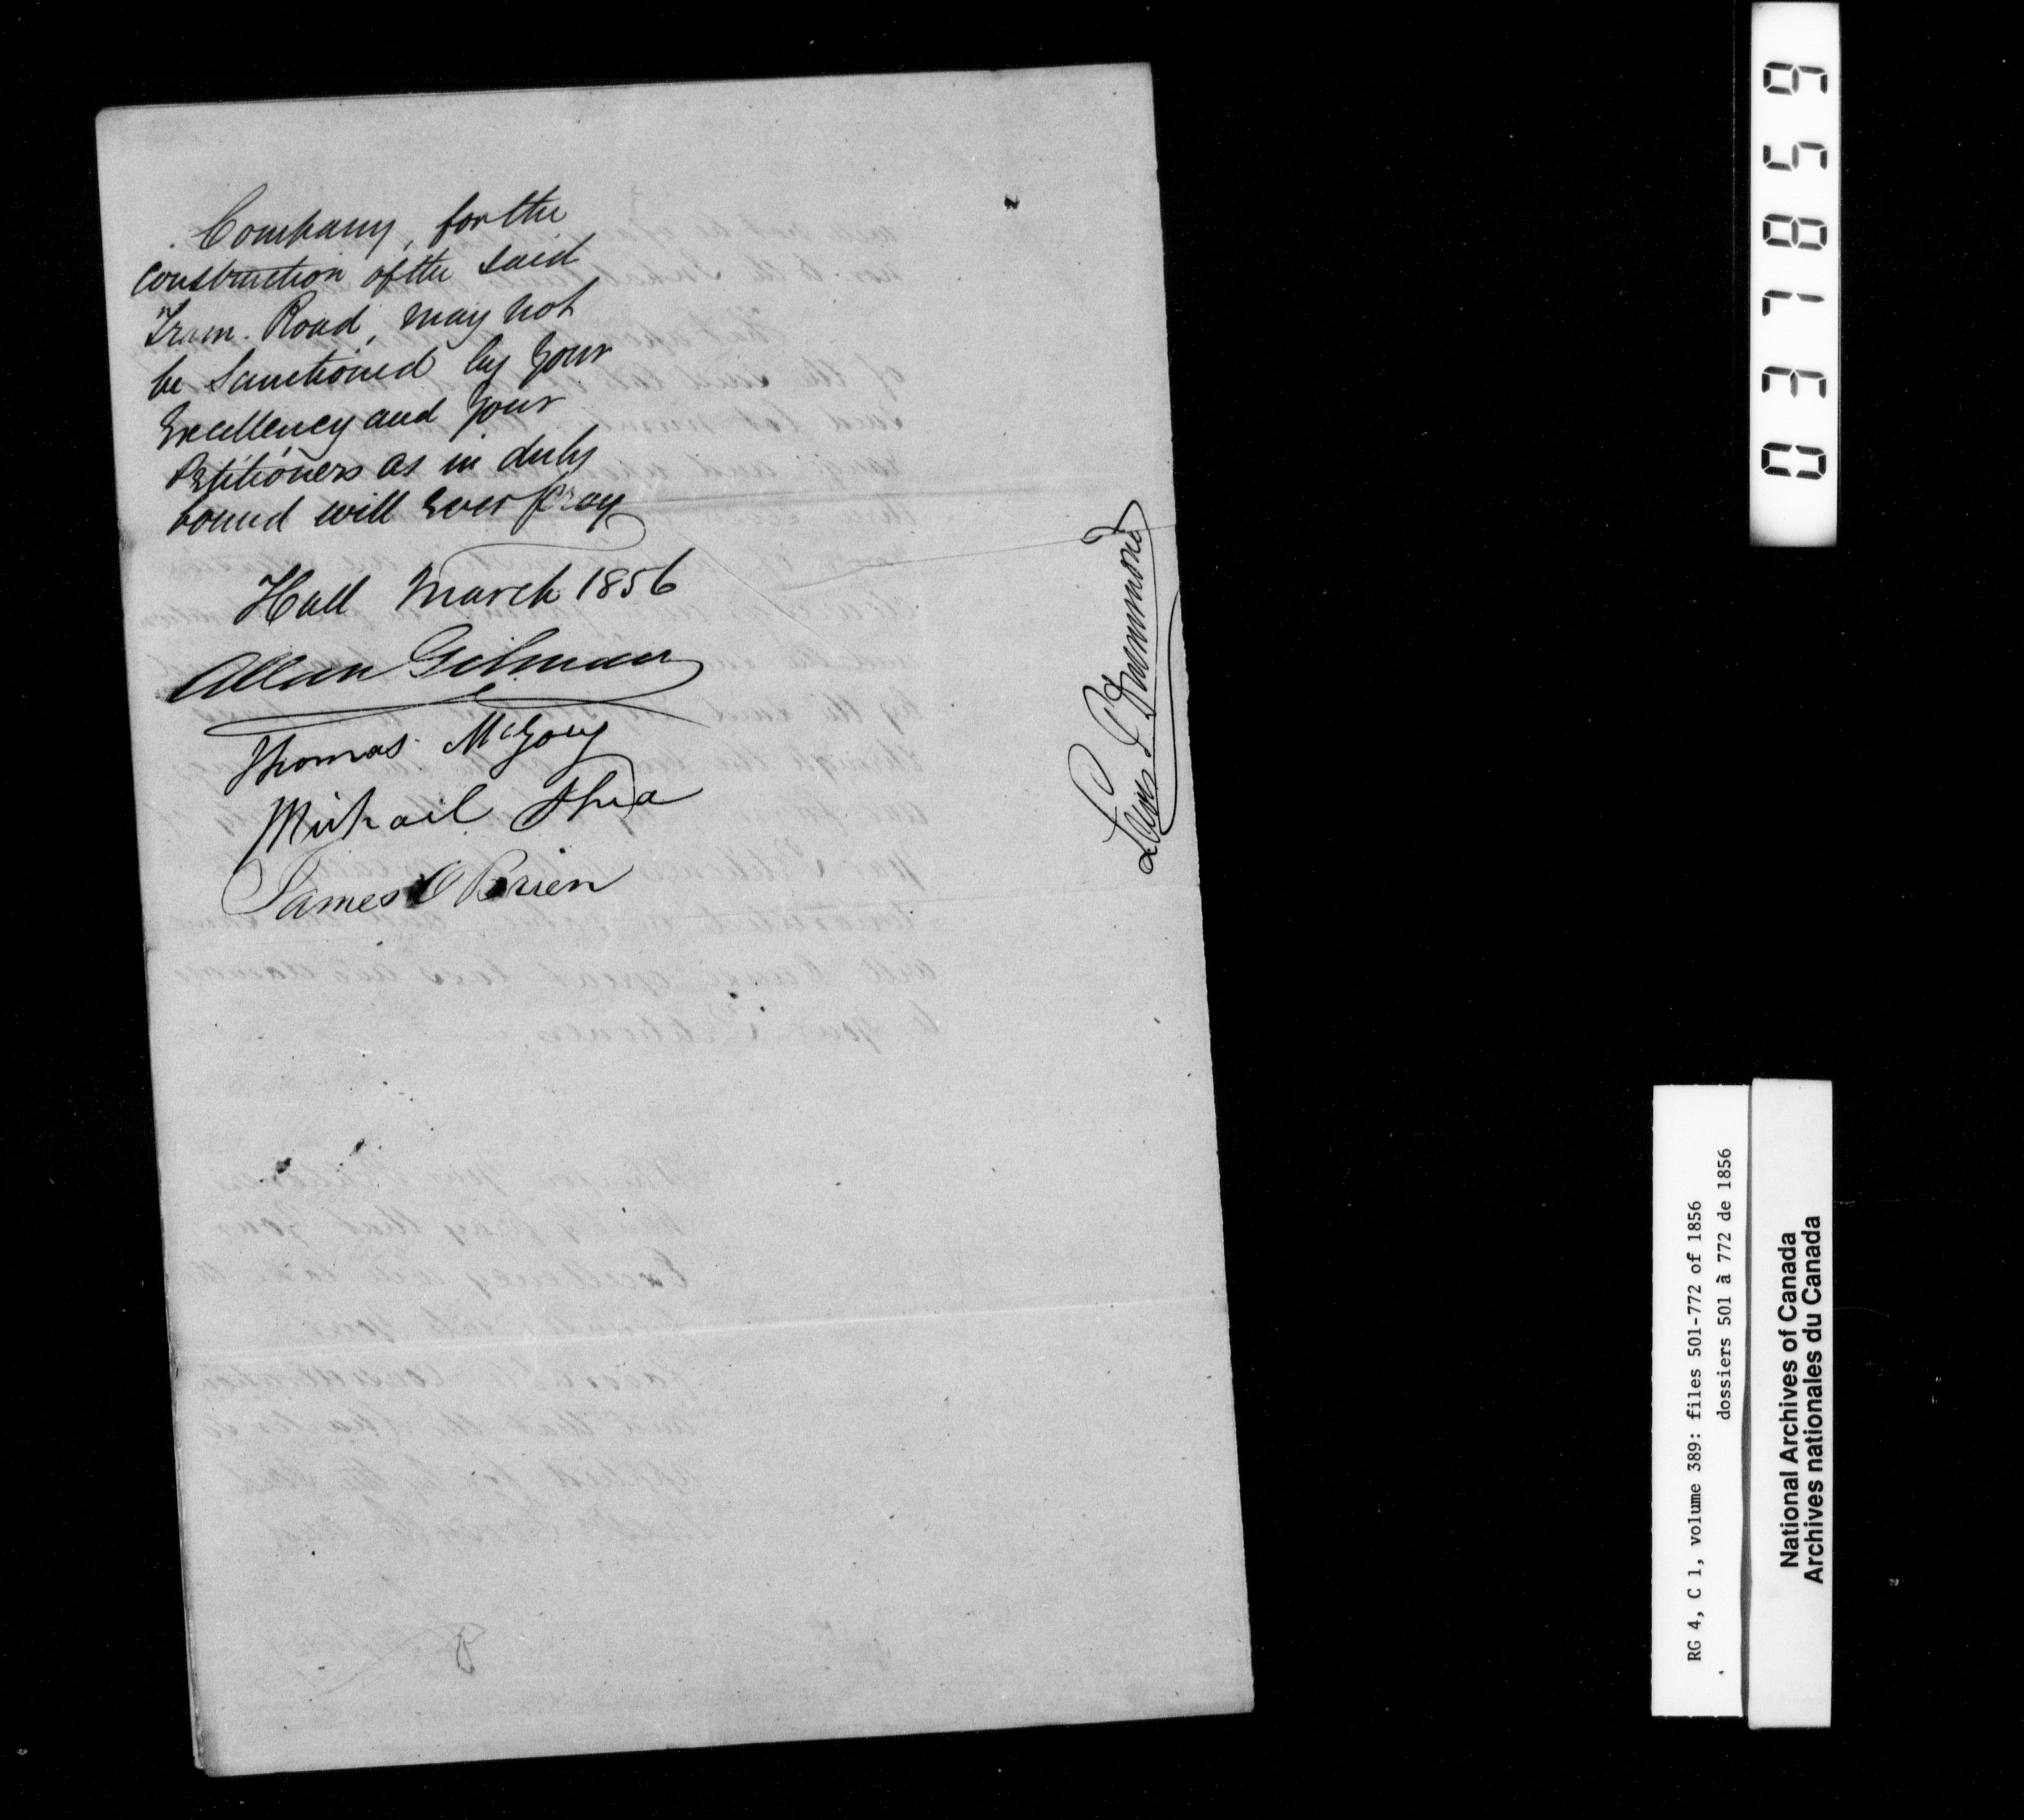 Company, for the
construction of the said
Tram Road, may not
be Sanctioned by Your
Excellency and Your
Petitioners as in duty
bound will Ever pray
Hull March 1856
Allan Gilmour
Thomas McGoey
Michael Shea
James O Brien
Lewis T Drummond
037859
RG 4, C 1, volume 389: files 501-772 of 1856
dossiers 501 à 772 de 1856
National Archives of Canada
Archives nationales du Canada